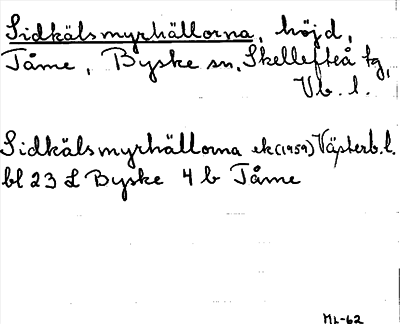 Sidkälsmyrhällorna, höjd,
Tåme, Byske sn, Skellefteå tg,
Vb. l.
Sidkälsmyrhällorna ek (1959) Västerb. l.
bl 23 L Byske 4 b Tåme